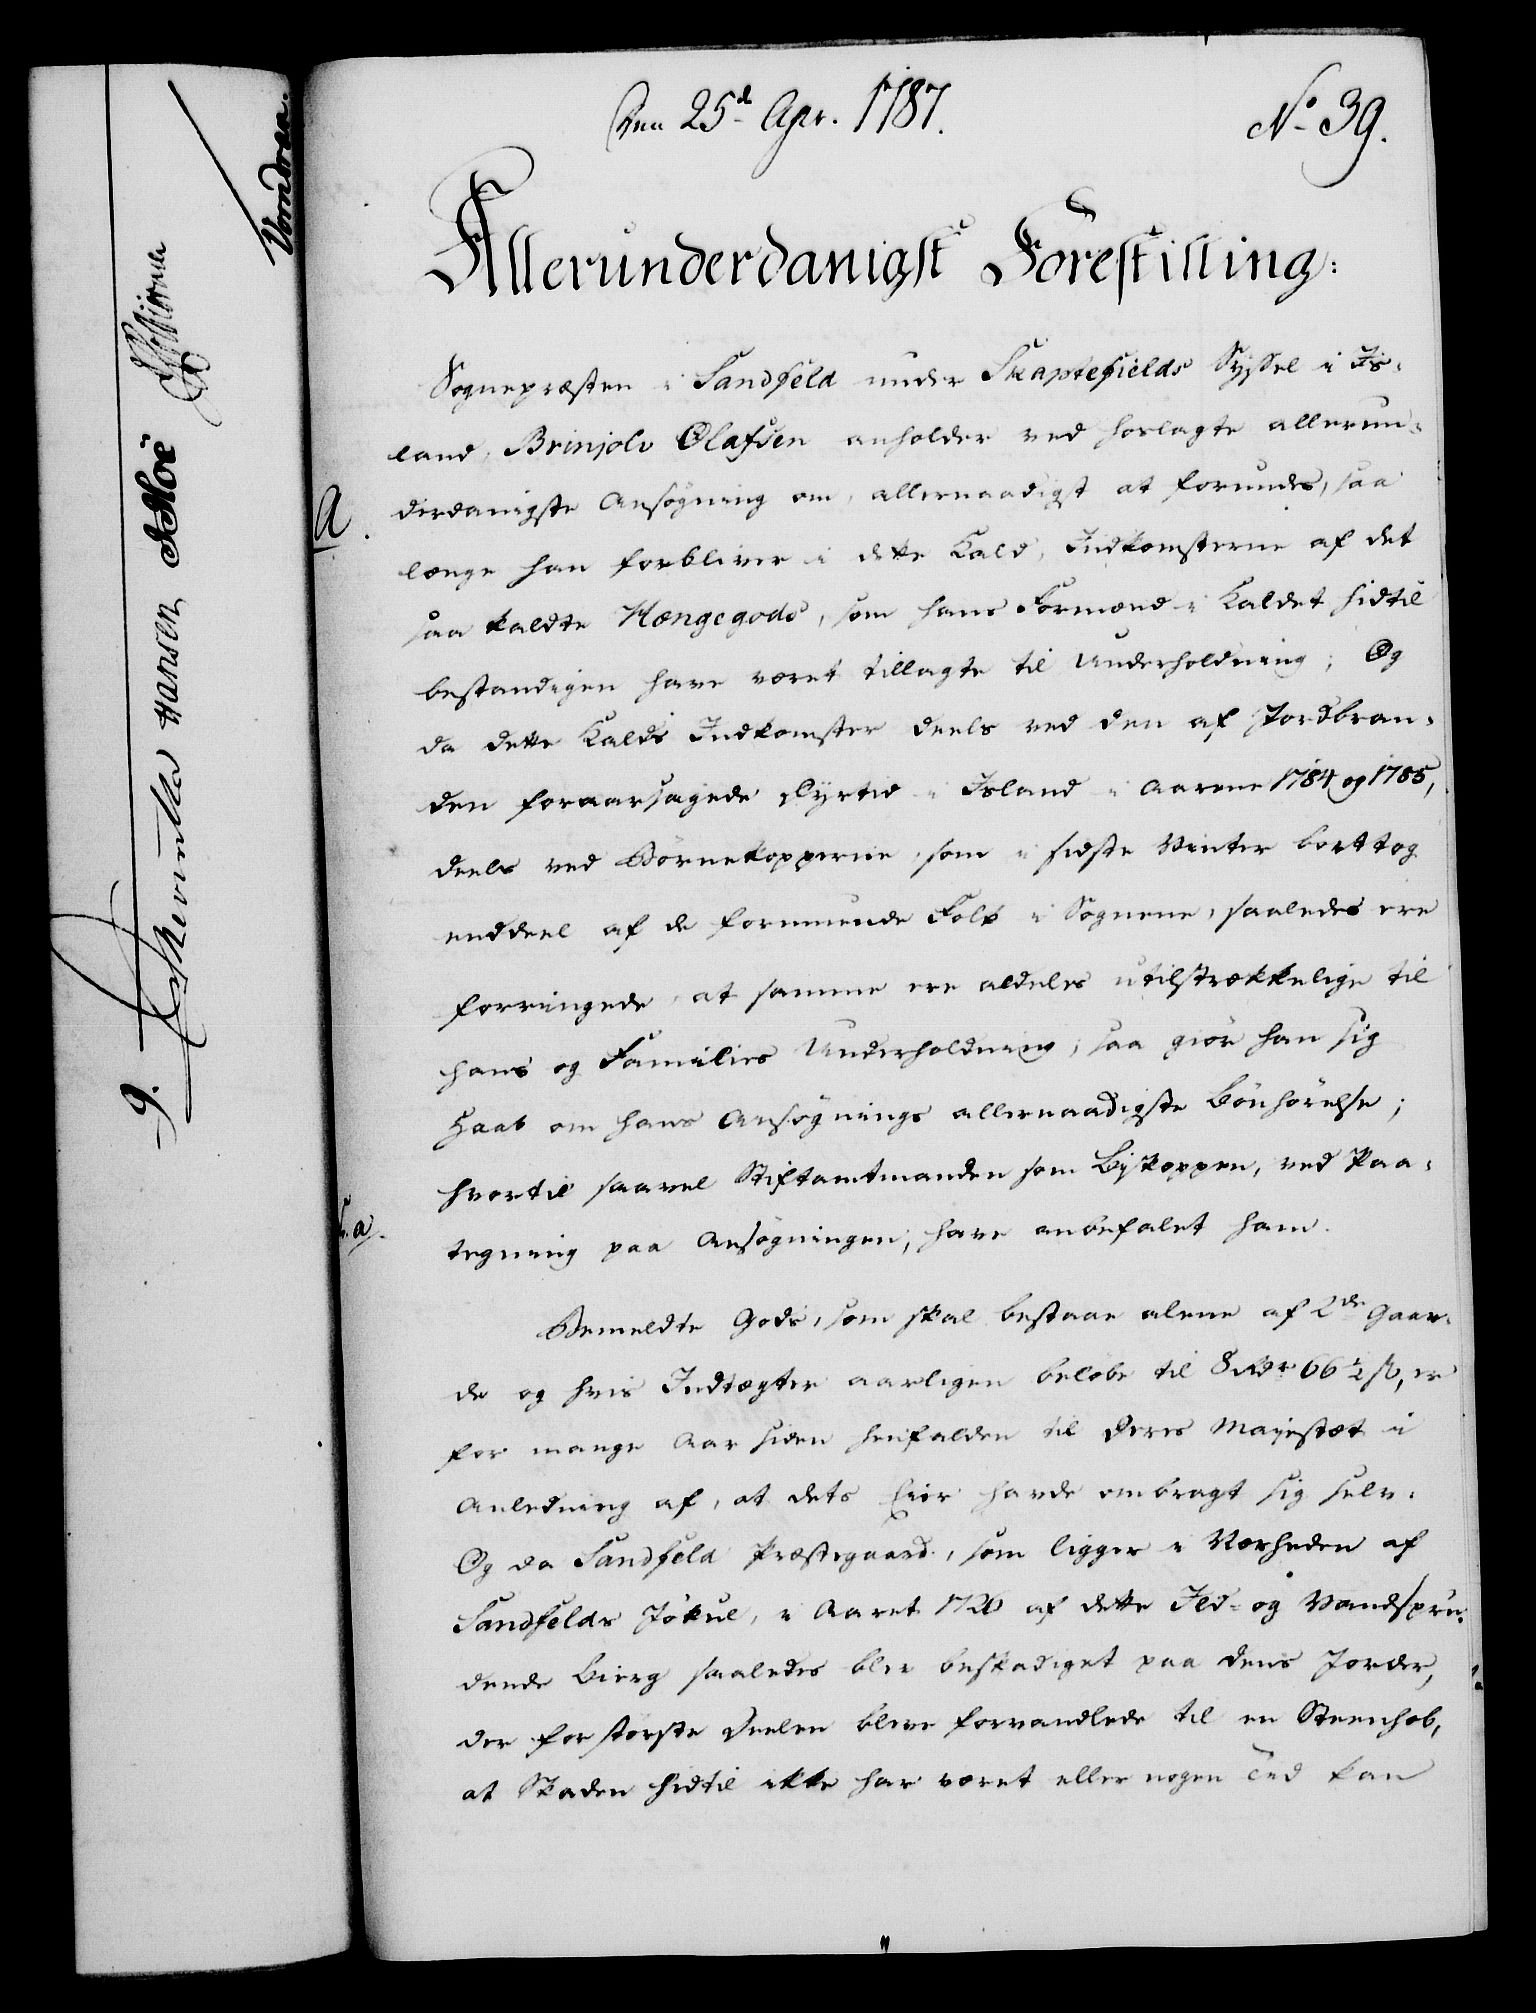 Den 25d Apr. 1787.
No 39.
Allerunderdanigst Forestilling:
Sognepræsten i Sandfeld under Skaptefields Syssel i Is-
land, Brinjolv Olafsen anholder ved hoslagte allerun-
derdanigste Ansøgning om, allernaadigst at forundes, saa
A.
længe han forbliver i dette Kald, Indkomsterne af det
saa kaldte Hængegods, som hans Formænd i Kaldet hidtil
bestandigen have været tillagte til Underholdning; Og
da dette Kalds Indkomster deels ved den af Jordbran-
den foraarsagede Dyrtid i Island i Aarene 1784 og 1785,
deels ved Børnekopperne, som i sidste Vinter borttog
enddeel af de formuende Folk i Sognene, saaledes ere
forringede, at samme ere aldeles utilstrækkelige til
hans og Families Underholdning, saa giør han sig
Haab om hans Ansøgnings allernaadigste Bønhørelse;
hvortil saavel Stiftamtmanden som Biskoppen, ved Paa-
a.
tegning paa Ansøgningen, have anbefalet ham.
Bemeldte Gods, som skal bestaae alene af 2de Gaar-
de og hvis Indtægter aarligen beløbe til 8 Rdr 66 ½ ß, er
for mange Aar siden henfalden til Deres Majestæt i
Anledning af, at dets Eier havde ombragt sig selv.
Og da Sandfeld Præstegaard, som ligger i Nærheden af
Sandfelds Jökul, i Aaret 1726 af dette Ild- og Vandspru-
dende Bierg saaledes blev beskadiget paa dens Jorder,
der for største Deelen bleve forvandlede til en Steenhob,
at Skaden hidtil ikke har været eller nogen Tid kan
9.
Hansen
Moë
Vondraa.